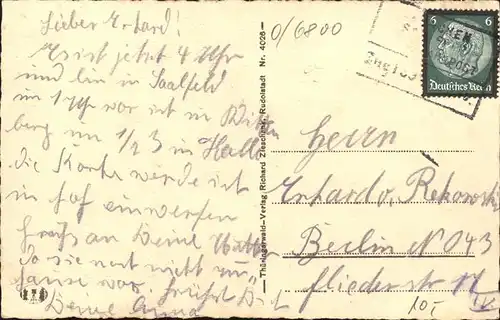 Lieber Erhard!
Es ist jetzt 4 Uhr
und bin in Saalfeld
um 1 Uhr war ich in
berg um 1/2 3 in Halle
die Karte werde ich
in Hof einwerfen
Gruß an Deine Mutter
da sie noch nicht zu
hause war. Grüßt Dich
Deine
Thüringerwald-Verlag Richard Zieschank, Rudolstadt Nr. 4026
0/6800
6 6
Deutsches Reich
Herrn
Erhard v.
Berlin N O 43
Fliederstr
10,-